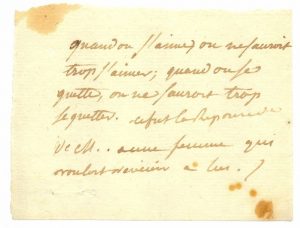 quand on s'aime, on ne sauroit
trop s'aimer; quand on se
quitte, on ne sauroit trop
se quitter. ce fut la Reponse de
de M.. a une femme qui
vouloit revenir a lui.